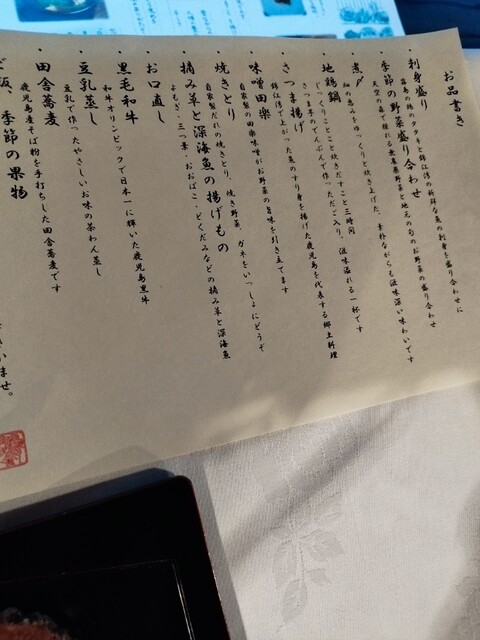 お品書き
・刺身盛り
霧島の鶏のタタキと錦江湾の新鮮な魚の刺身を盛り合わせに
・季節の野菜盛り合わせ
天空の森で採れる無農薬野菜と地元の旬のお野菜の盛り合わせ
・煮〆
畑の恵みをゆっくりと炊き上げた、素朴ながらも滋味深い味わいです
・地鶏鍋
じっくりことこと炊きだすこと三時間
さつま芋のでんぷんで作っただご入り、滋味溢れる一杯です
・さつま揚げ
錦江湾で上がった魚のすり身を揚げた鹿児島を代表する郷土料理
・味噌田楽
自家製の田楽味噌がお野菜の旨味を引き立てます
・焼きとり
自家製だれの焼きとり、焼き野菜、ガネをいっしょにどうぞ
・摘み草と深海魚の揚げもの
よもぎ・三つ葉・おおばこ・どくだみなどの摘み草と深海魚
・お口直し
・黒毛和牛
和牛オリンピックで日本一に輝いた鹿児島黒牛
・豆乳蒸し
豆乳で作ったやさしいお味の茶わん蒸し
・田舎蕎麦
鹿児島産そば粉を手打ちした田舎蕎麦です
ご飯、季節の果物
いませ。